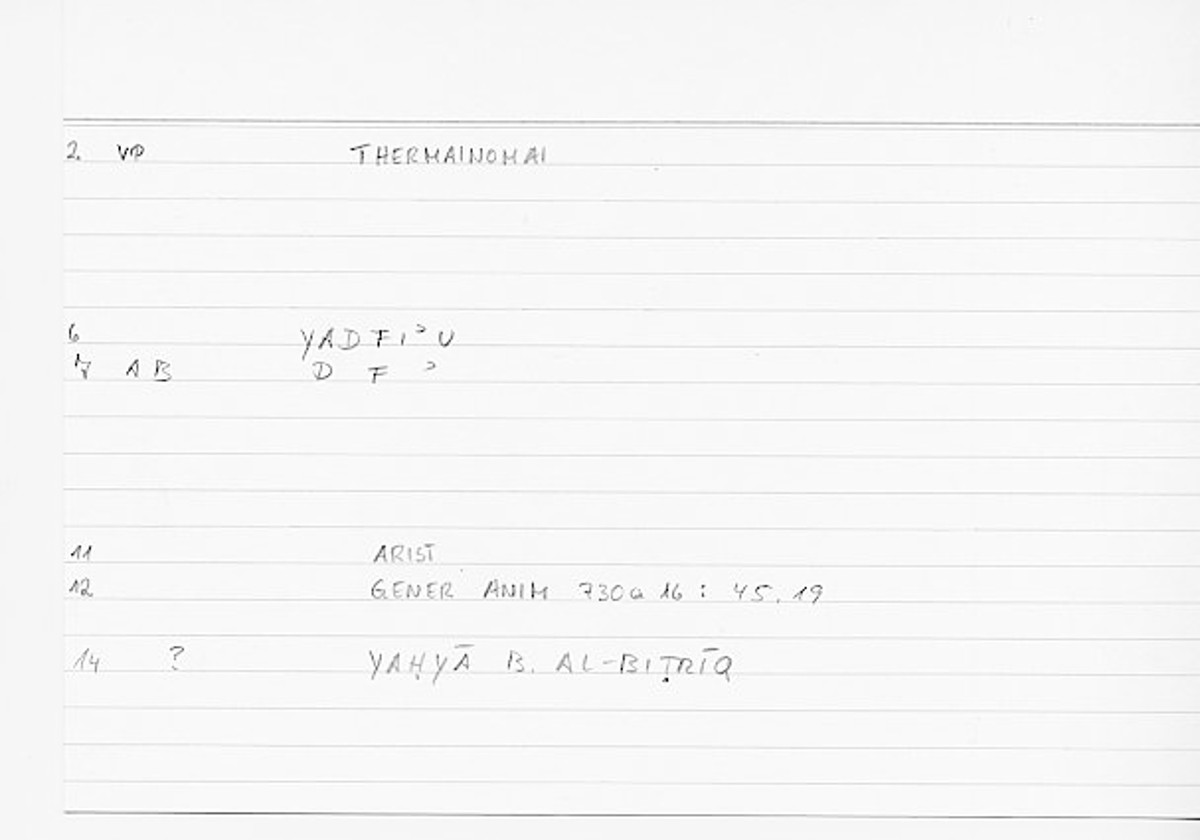 2 VP THERMAINOMAI
6 YADFIʾU
7 AB D F ʾ
11 ARIST
12 GENER ANIM 730a 16 : 45.19
14 ? YAḤYĀ B. AL-BIṬRĪQ